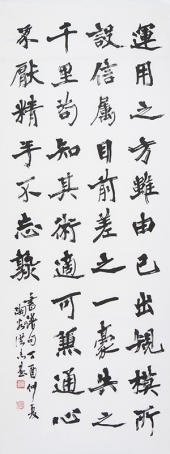 運用之方雖由己出規模所
設信属目前差之一豪失之
千里苟知其術適可兼通心
不厭精手不忘熟
書譜句丁酉仲夏